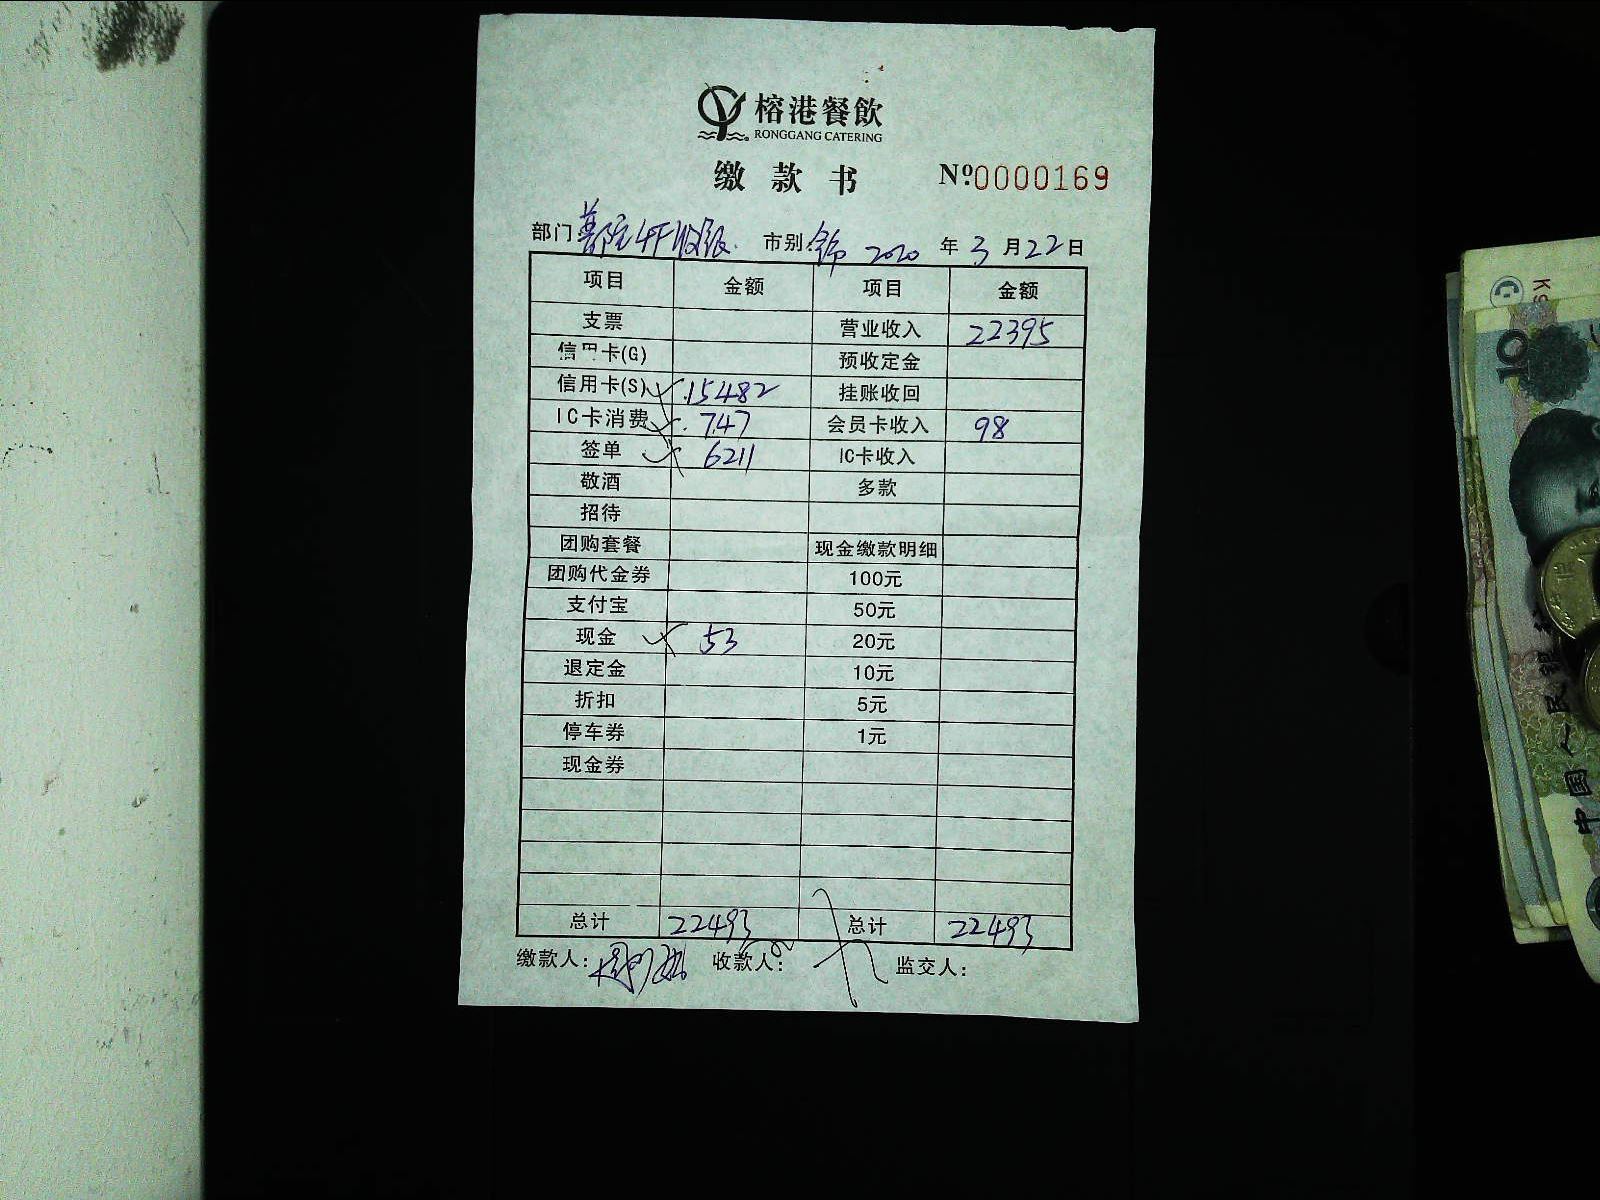 榕港餐飲
RONGGANG CATERING
缴款书 Nº:0000169
部门: 4F收银 市别: 2020 年 3 月 22 日
项目 金额 项目 金额
支票 营业收入 22395
信用卡(G) 预收定金
信用卡(S) 15482 挂账收回
IC卡消费 747 会员卡收入 98
签单 6211 IC卡收入
敬酒 多款
招待
团购套餐 现金缴款明细
团购代金券 100元
支付宝 50元
现金 53 20元
退定金 10元
折扣 5元
停车券 1元
现金券
总计 22493 总计 22493
缴款人: 收款人: 监交人:
10
中国人民银